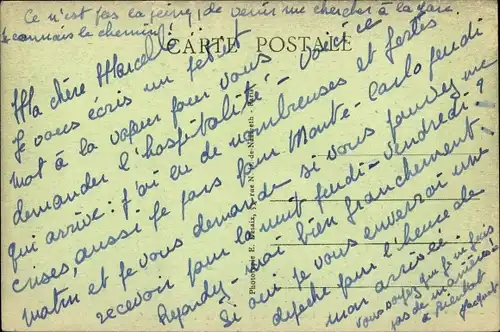 Ce n'est pas la peine de venir me chercher à la gare.
Je connais le chemin
CARTE POSTALE
Ma chère Marcelle
Je vous écris un petit
mot à la vapeur pour vous
demander l'hospitalité - voici ce
qui arrive : j'ai eu de nombreuses et fortes
crises, aussi je pars pour Monte-Carlo jeudi
matin et je vous demande si vous pouvez me
recevoir pour la nuit jeudi-vendredi ?
Répondez-moi bien franchement -
Si oui je vous enverrai une
dépêche pour l'heure de
mon arrivée.
vous voyez que je ne fais
pas de manières
à bientôt